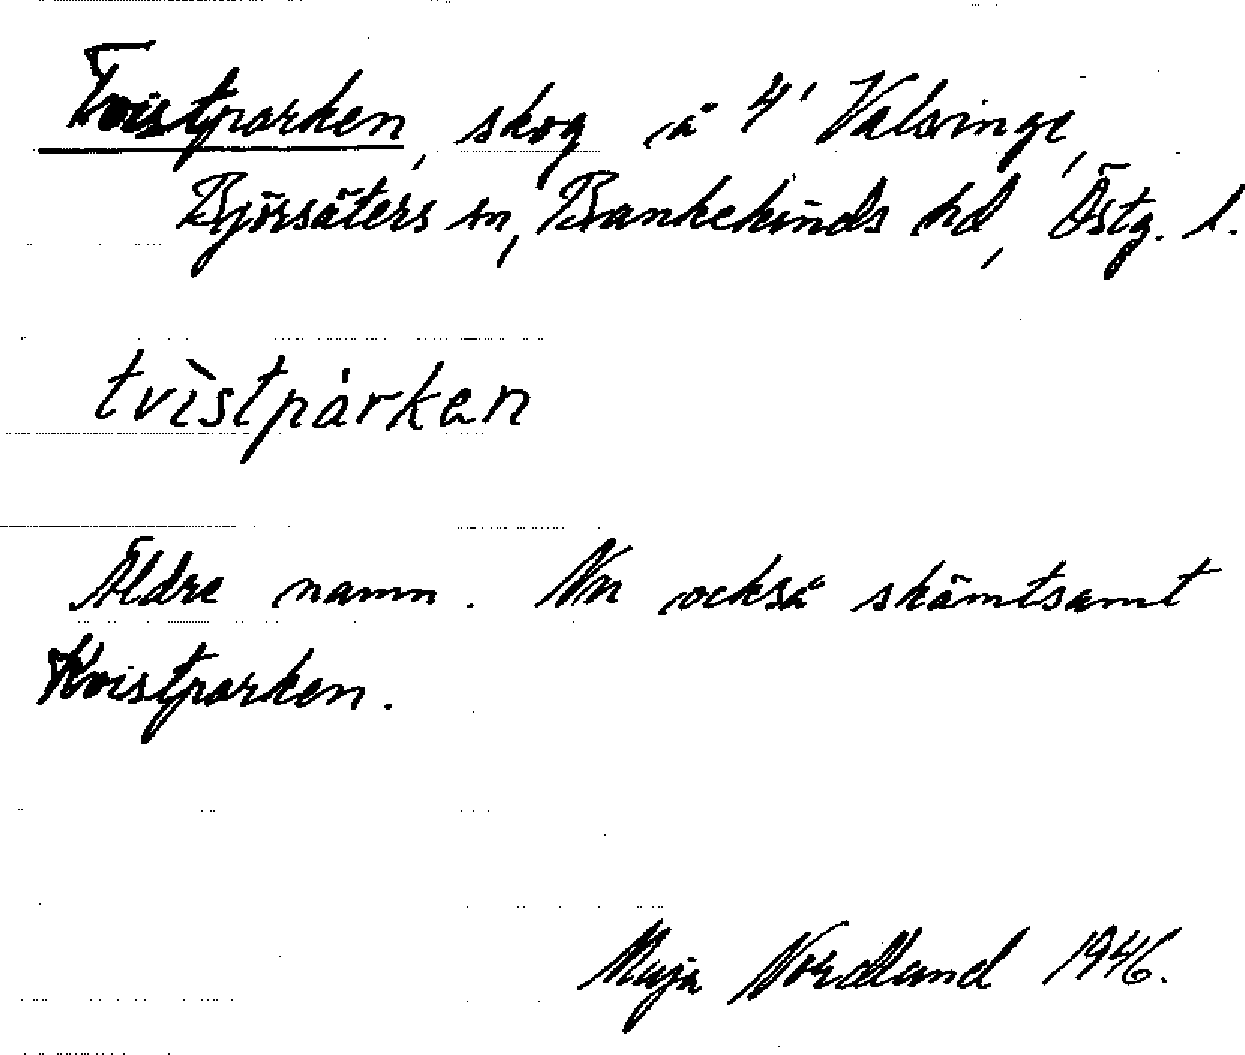 Tvistparken, skog å 4' Valsvinge,
Björsäters sn, Bankekinds hd, Östg. l.
tvìstpàrken
Äldre namn. Nu också skämtsamt
Kvistparken.
Maja Nordland 1946.